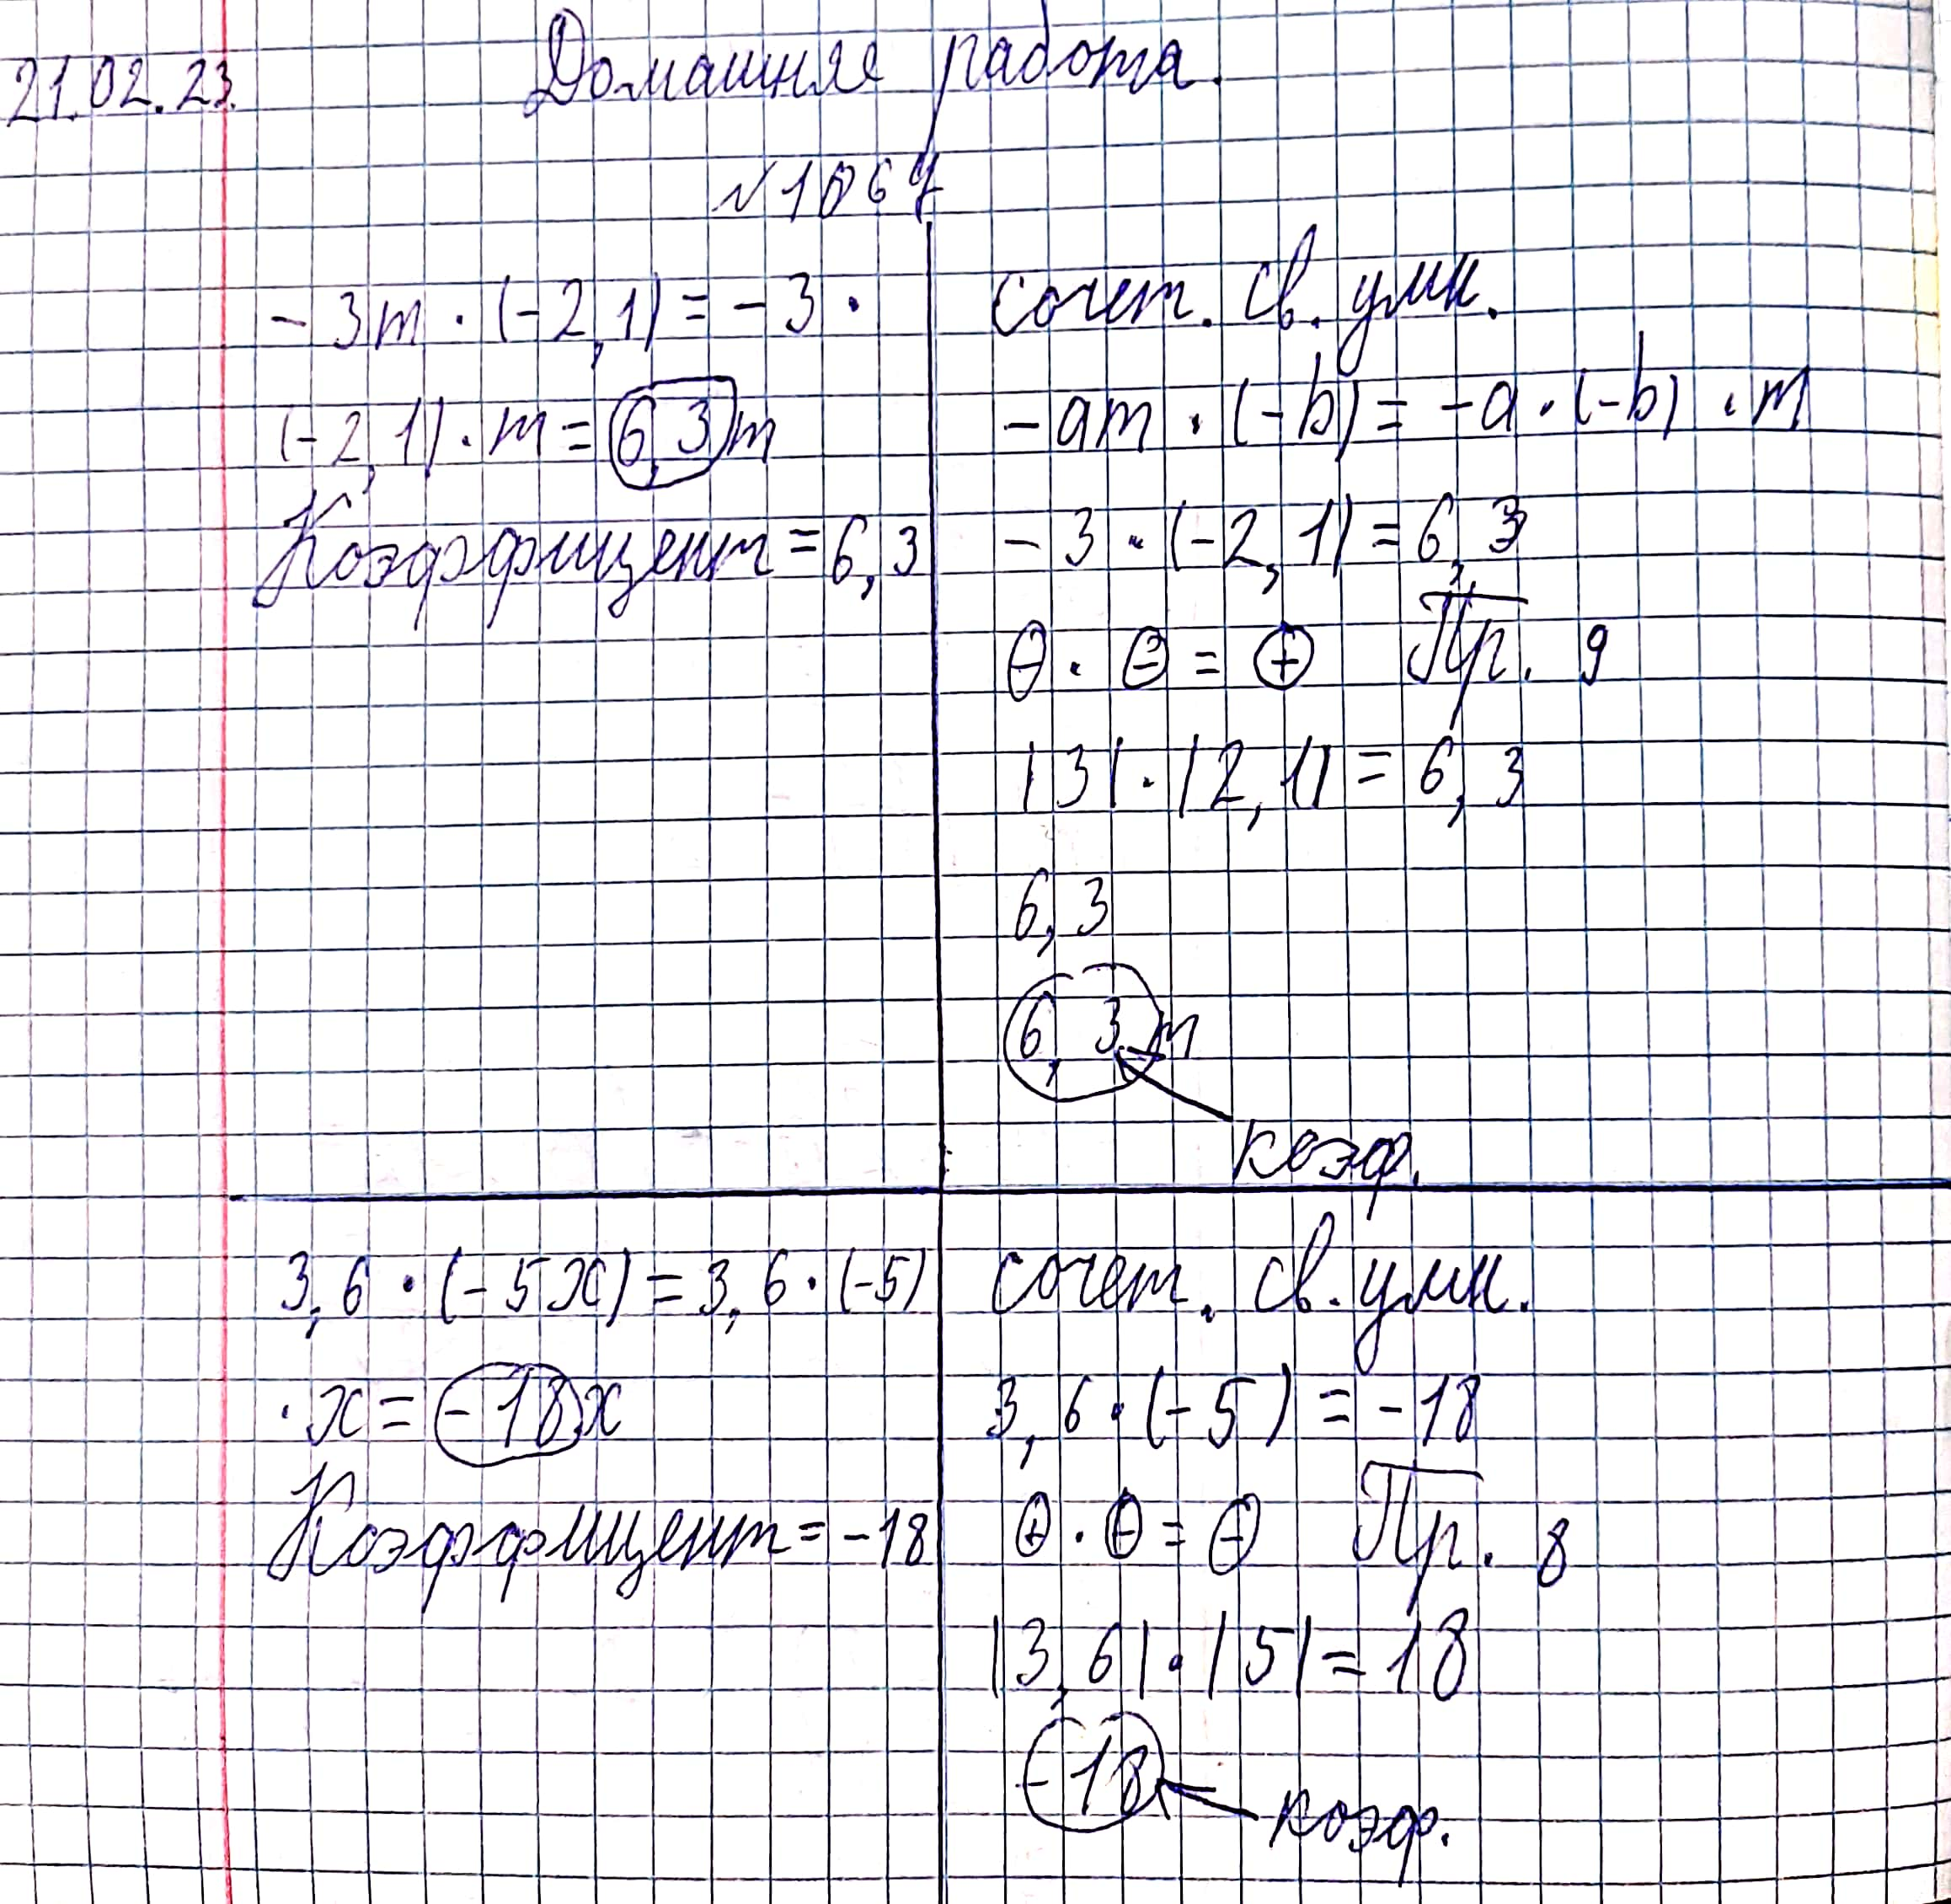 21.02.23.
Домашняя работа.
№1067
-3m · (-2,1) = -3 ·
(-2,1) · m = 6,3m
Коэффициент = 6,3
сочет. св. умн.
-am · (-b) = -a · (-b) · m
-3 · (-2,1) = 6,3
⊖ · ⊖ = ⊕ Пр. 9
|3| · |2,1| = 6,3
6,3
6,3m
коэф.
3,6 · (-5x) = 3,6 · (-5)
· x = -18x
Коэффициент = -18
сочет. св. умн.
3,6 · (-5) = -18
⊕ · ⊖ = ⊖ Пр. 8
|3,6| · |5| = 18
-18
коэф.